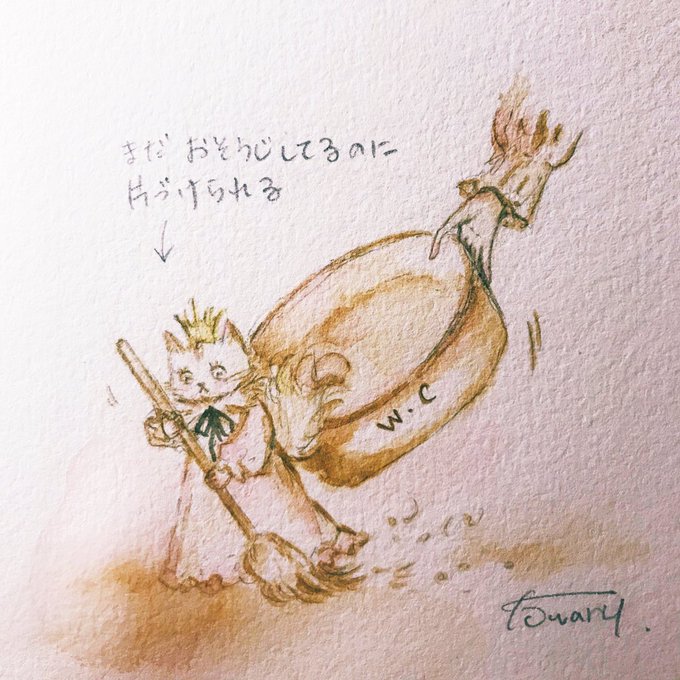 まだ おそうじしてるのに
片づけられる
W.C
Towary.